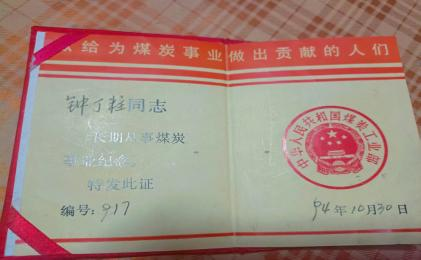 献给为煤炭事业做出贡献的人们
钟丁柱同志
长期从事煤炭
事业纪念
特发此证
编号：917
中华人民共和国煤炭工业部
94年10月30日